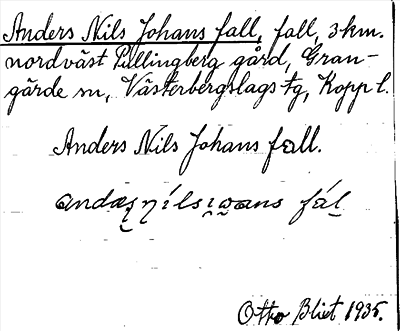 Anders Nils Johans fall, fall, 3 km.
nordväst Pullingberg gård, Gran-
gärde sn, Västerbergslags tg, Kopp l.
Anders Nils Johans fall.
fál
Otto Blixt 1935.